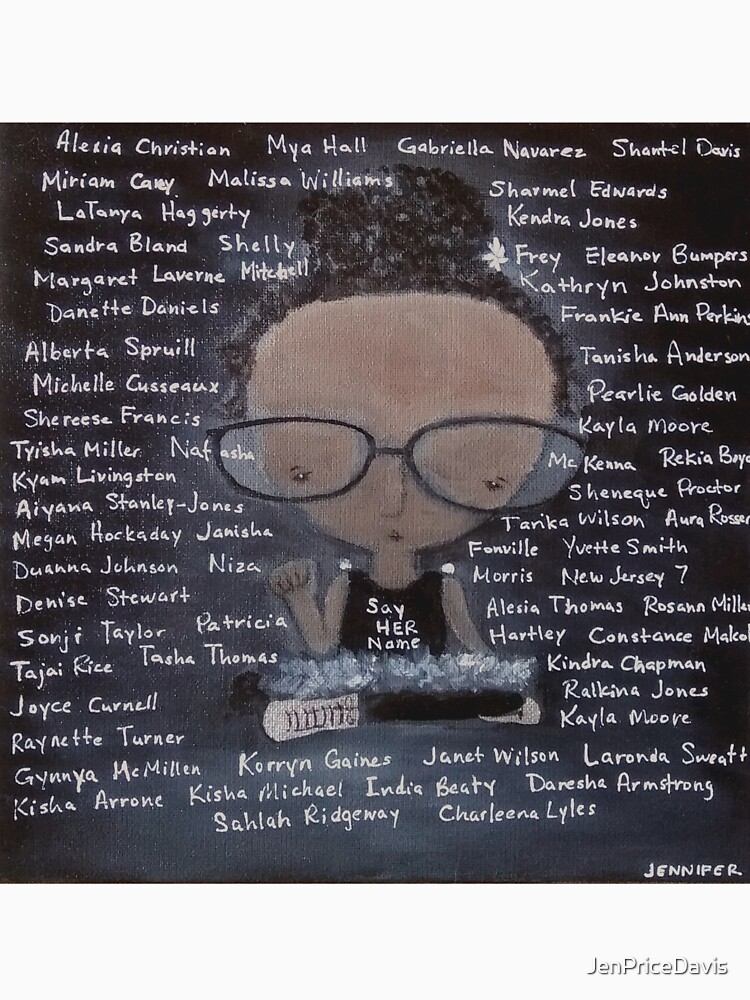 Alexia Christian Mya Hall Gabriella Navarez Shantel Davis
Miriam Carey Malissa Williams Sharmel Edwards
LaTanya Haggerty Kendra Jones
Sandra Bland Shelly Frey Eleanor Bumpers
Margaret Laverne Mitchell Kathryn Johnston
Danette Daniels Frankie Ann Perkins
Alberta Spruill Tanisha Anderson
Michelle Cusseaux Pearlie Golden
Shereese Francis Kayla Moore
Tyisha Miller Natasha McKenna Rekia Boyd
Kyam Livingston Sheneque Proctor
Aiyana Stanley-Jones Tarika Wilson Aura Rosser
Megan Hockaday Janisha Fonville Yvette Smith
Duanna Johnson Niza Morris New Jersey 7
Denise Stewart Alesia Thomas Rosann Miller
Sonji Taylor Patricia Hartley Constance Malcol
Tajai Rice Tasha Thomas Kindra Chapman
Joyce Curnell Ralkina Jones
Raynette Turner Kayla Moore
Gynnya McMillen Korryn Gaines Janet Wilson Laronda Sweatt
Kisha Arrone Kisha Michael India Beaty Daresha Armstrong
Sahlah Ridgeway Charleena Lyles
Say
HER
Name
JENNIFER
JenPriceDavis